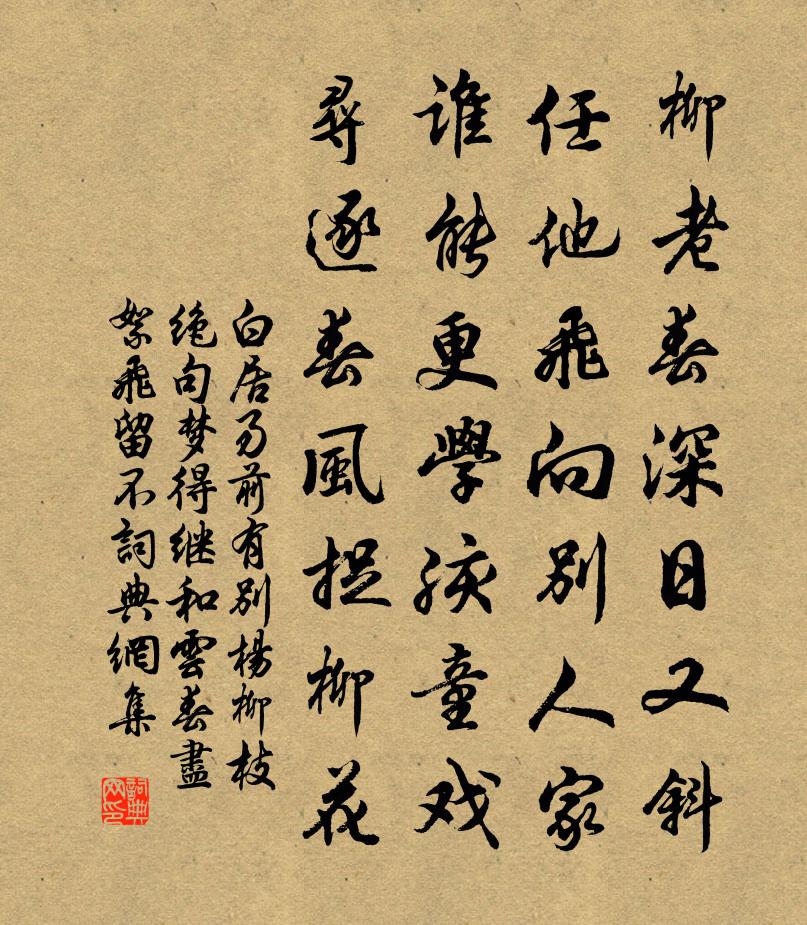 柳老春深日又斜
任他飛向別人家
誰能更學孩童戏
尋逐春風捉柳花
白居易前有別楊柳枝
绝句梦得继和雲春盡
絮飛留不詞典網集
詞典网印